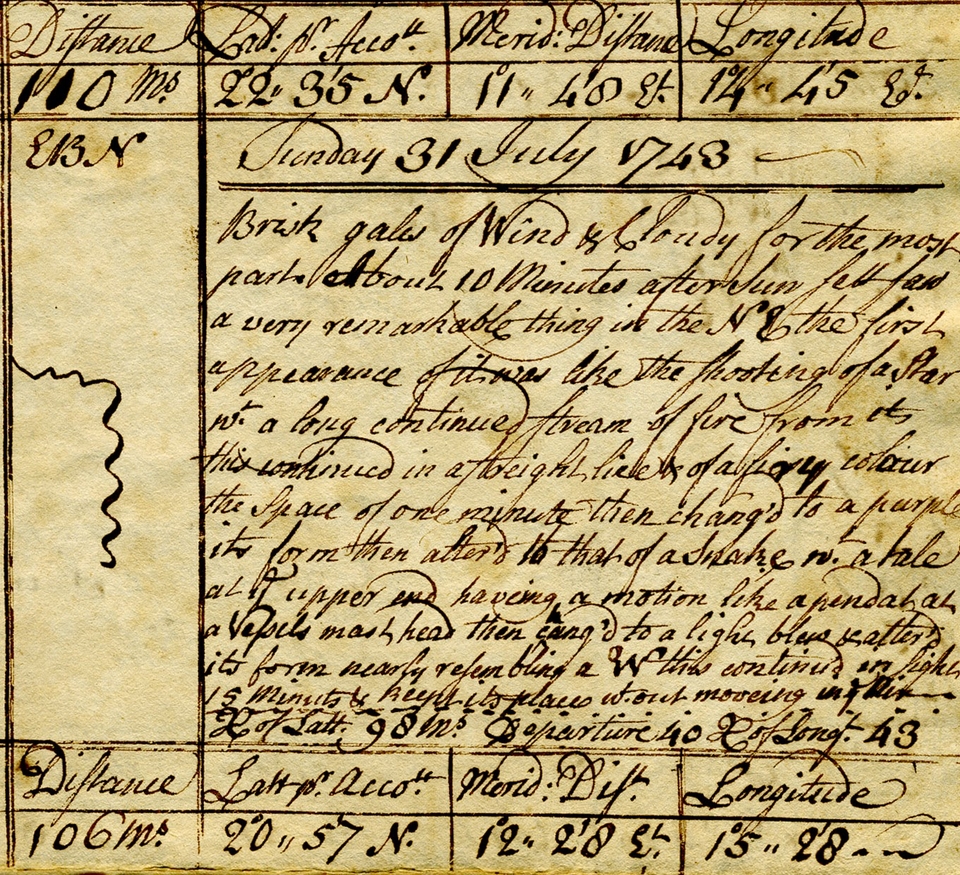 Distance Latt: pr. Accott Merid: Distance Longitude
110 Ms 22,, 35 N. 11,, 48 Et. 14,, 45 Et.
EBN Sunday 31 July 1743
Brisk gales of Wind & Cloudy for the most
part. About 10 Minutes after Sun sett saw
a very remarkable thing in the NE the first
appearance of it was like the shooting of a Star
wt. a long continued stream of fire from it
this continued in a streight line & of a fiery colour
the Space of one minute then chang'd to a purple
its form then alter'd to that of a Snake wt. a tale
at ye upper end having a motion like a pendat at
a Vessels mast head then cang'd to a light blew & alter'd
its form nearly resembling a W this continu'd in sight
15 Minuts & keept its place wt.out moveing
D of Latt. 98 Ms Departure 40 D of Longt. 43
Distance Latt pr. Accott Merid: Dist. Longitude
106 Ms. 20,, 57 N. 12,, 28 Et. 15,, 28